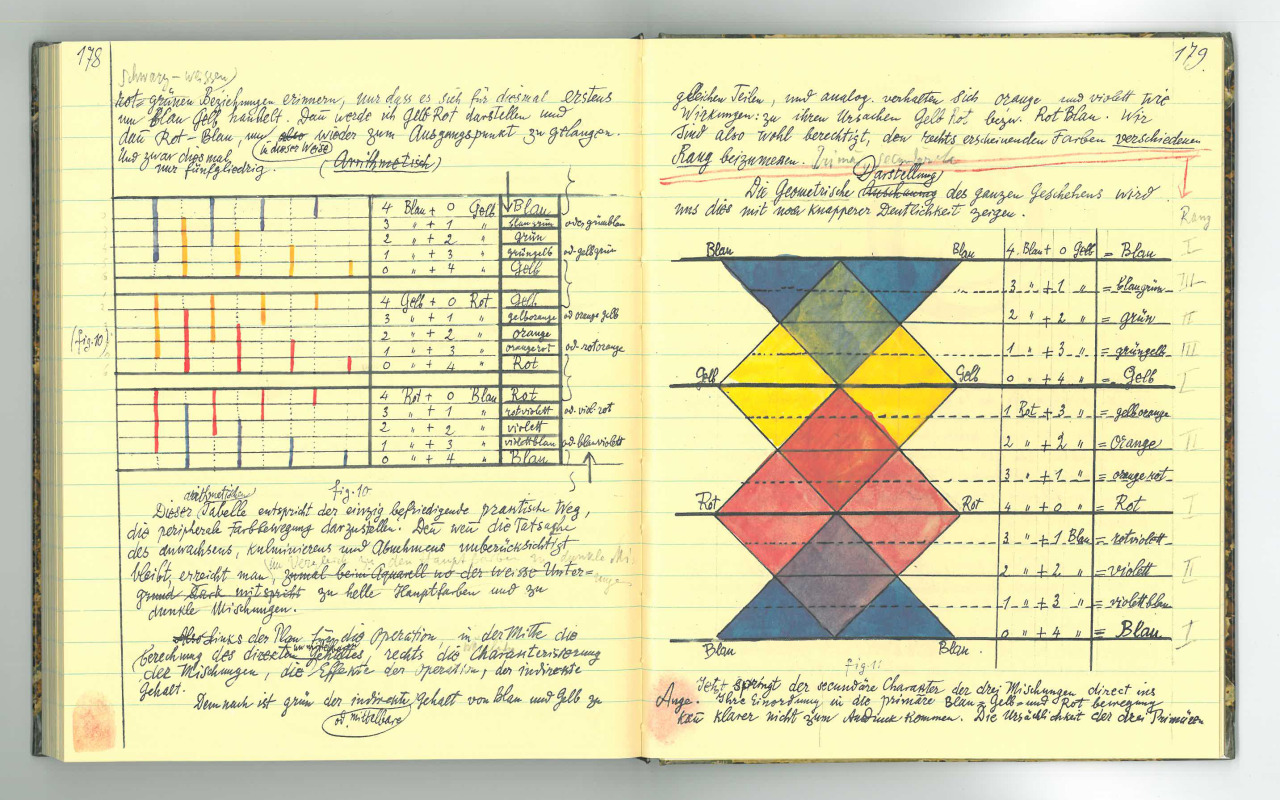 178
Schwarz-weissen)
rot=grünen Beziehungen erinnern, nur dass es sich für diesmal erstens
um Blau Gelb handelt. Dañ werde ich Gelb Rot darstellen und
dañ Rot-Blau, um also wieder zum Ausgangspunkt zu gelangen.
(in dieser Weise)
Und zwar diesmal
nur fünfgliedrig.
(Arrithmetisch)
4 Blau + 0 Gelb Blau
3 " + 1 " blaugrün oder grünblau
2 " + 2 " grün
1 " + 3 " grüngelb od. gelbgrün
0 " + 4 " Gelb
4 Gelb + 0 Rot Gelb
3 " + 1 " gelborange od orange gelb
2 " + 2 " orange
(fig. 10)
1 " + 3 " orangerot od. rotorange
0 " + 4 " Rot
4 Rot + 0 Blau Rot
3 " + 1 " rotviolett od. viol. rot
2 " + 2 " violett
1 " + 3 " violettblau od. blauviolett
0 " + 4 " Blau
fig. 10
arithmetischen
Dieser Tabelle entspricht der einzig befriedigende praktische Weg,
die peripherale Farbbewegung darzustellen. Deñ weñ die Tatsache
des Anwachsens, Kulminierens und Abnehmens unberücksichtigt
im Vergleich zu den Hauptfarben zu dunkle Mi-
bleibt, erreicht man, zumal beim Aquarell wo der weisse Unter=
grund stark mitspricht zu helle Hauptfarben und zu
dunkle Mischungen.
Also Links der Plan für die Operation, in der Mitte die
berechnung des direkten Gehaltes, rechts die Charakterisierung
der Mischungen, die Effekte der Operation, der indirekte
Gehalt.
Demnach ist grün der indirekte Gehalt von Blau und Gelb zu
(od. mittelbare)
179
gleichen Teilen, und analog verhalten sich orange und violett wie
Wirkungen zu ihren Ursachen Gelb Rot bezw. Rot Blau. Wir
sind also wohl berechtigt, den rechts erscheinenden Farben verschiedenen
Rang beizumessen.
Darstellung
Die Geometrische Ausbildung des ganzen Geschehens wird
uns dies mit noch knapperer Deutlichkeit zeigen.
Rang
Blau Blau 4 Blau + 0 Gelb = Blau I
3 " + 1 " = blaugrün III
2 " + 2 " = grün II
1 " + 3 " = grüngelb III
Gelb Gelb 0 " + 4 " = Gelb I
1 Rot + 3 " = gelborange
2 " + 2 " = Orange II
3 " + 1 " = orangerot
Rot Rot 4 " + 0 " = Rot I
3 " + 1 Blau = rotviolett
2 " + 2 " = violett II
1 " + 3 " = violettblau
0 " + 4 " = Blau I
Blau Blau
fig. 11
Jetzt springt der secundäre Charakter der drei Mischungen direct ins
Auge. Ihre Einordnung in die primäre Blau-Gelb- und Rot bewegung
kañ klarer nicht zum Ausdruck kommen. Die Ursächlichkeit der drei Primären